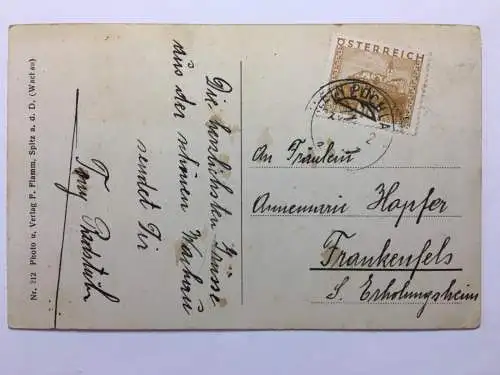 Nr. 212 Photo u. Verlag P. Flamm, Spitz a. d. D. (Wachau)
Die herzlichsten Grüsse
aus der schönen Wachau
sendet Dir
Tony
ÖSTERREICH
An Fräulein
Annemarie Hopfer
Frankenfels
S. Erholungsheim